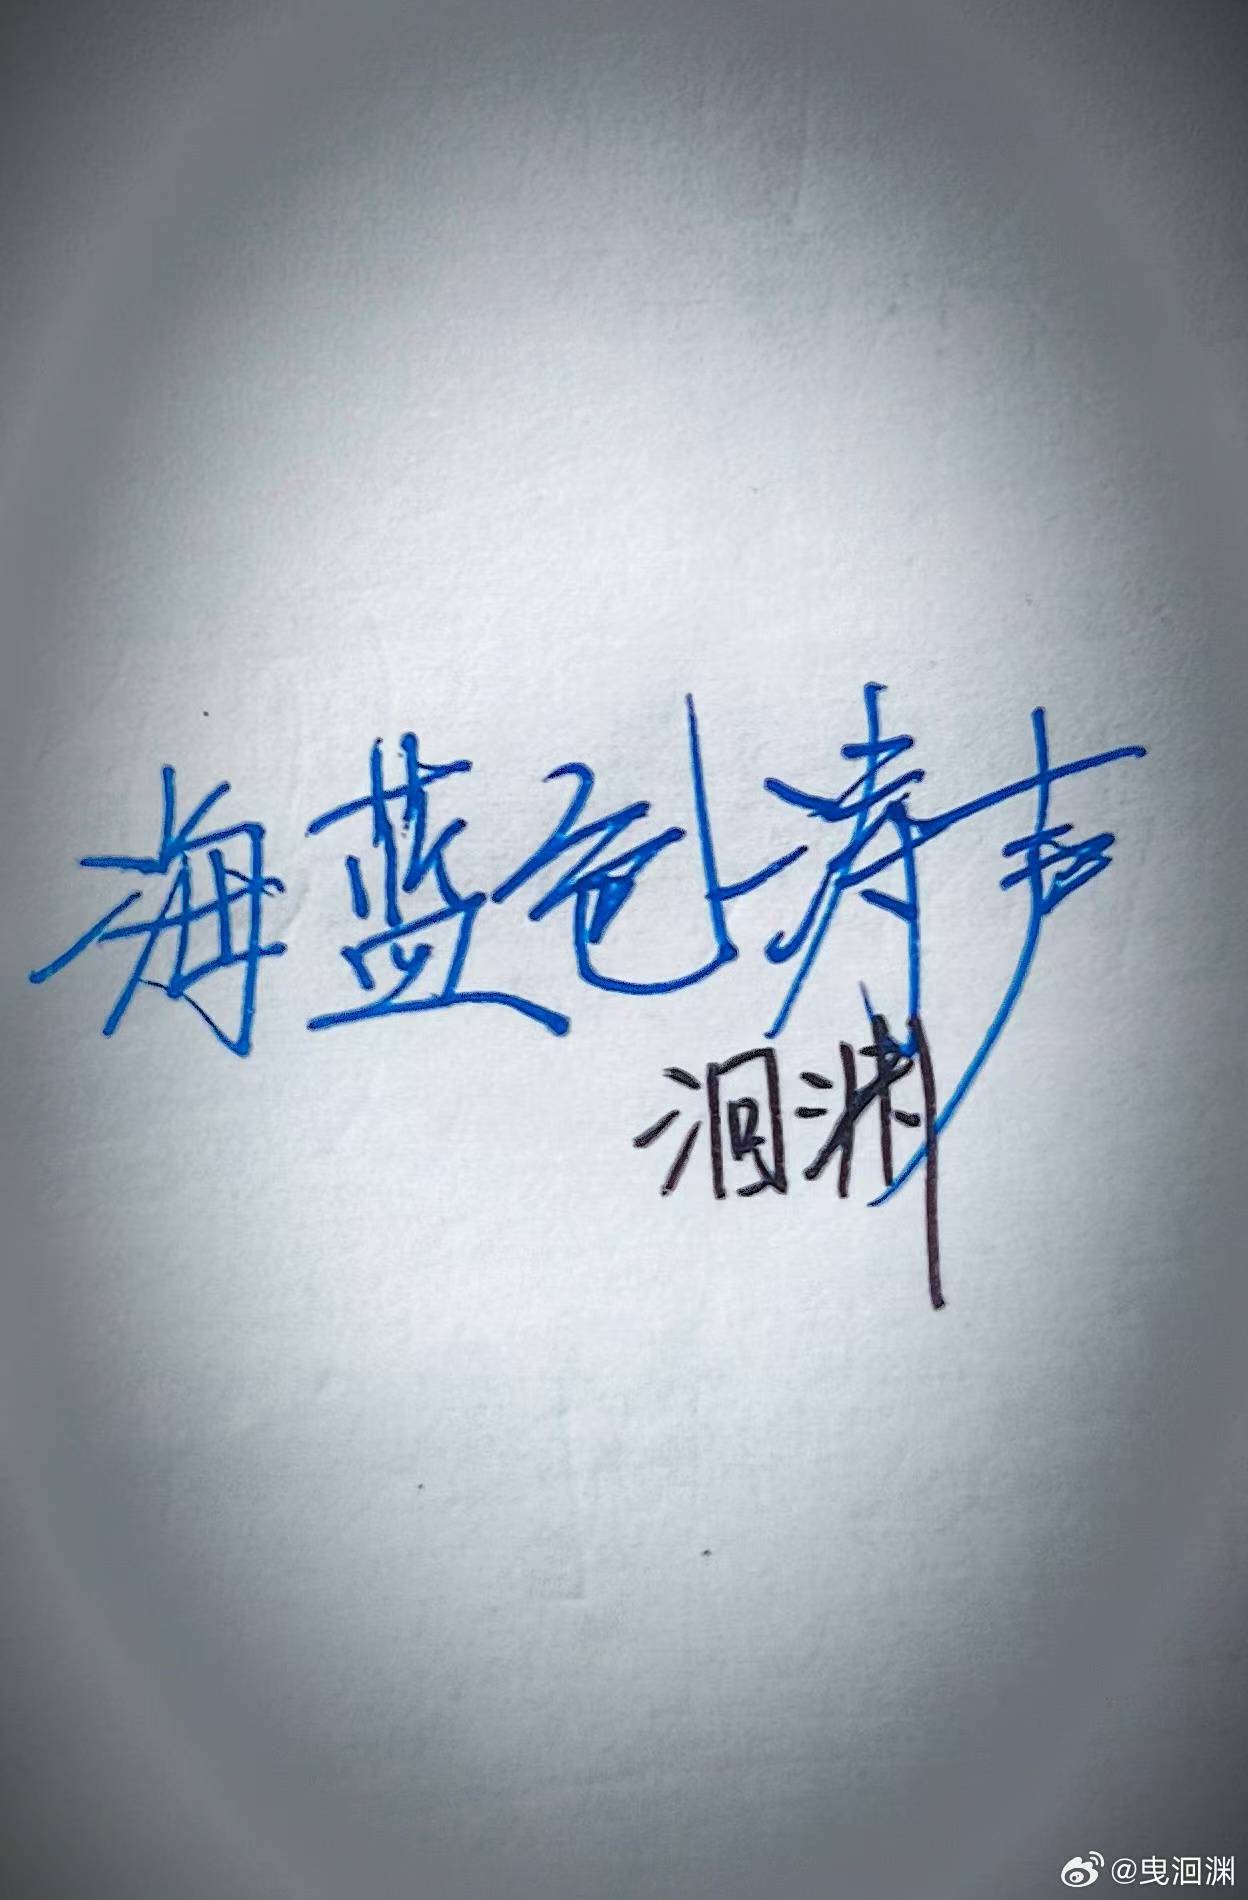 海蓝色涛声
洄渊
@曳洄渊